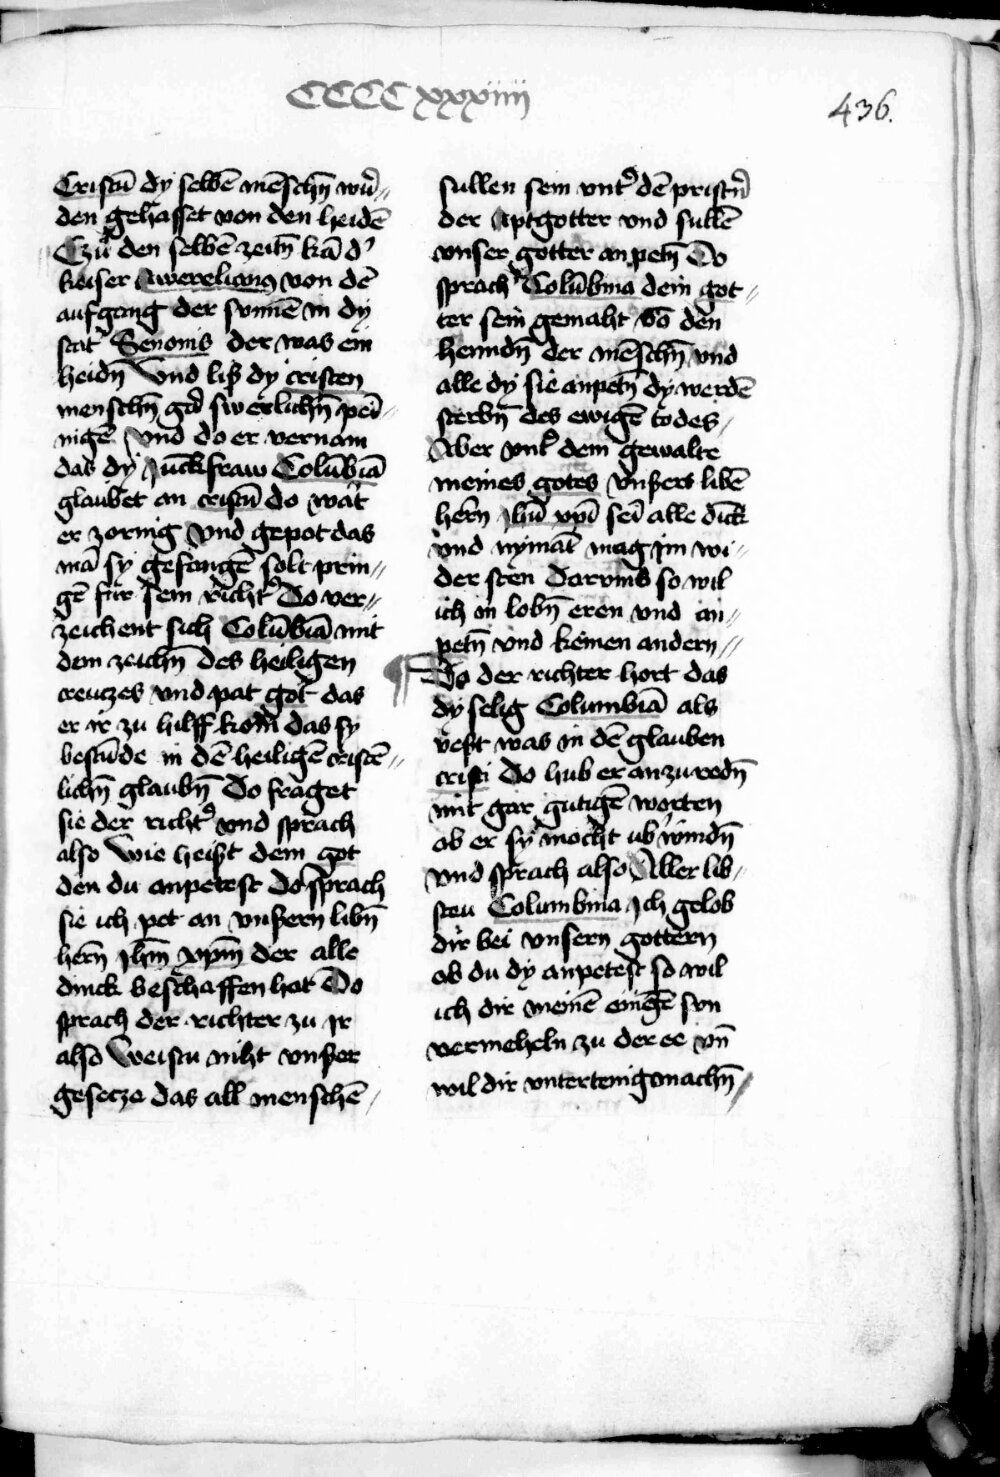 CCCC xxxiiii
436.
Cristū dy selbē mēschn̄ wur̄//
den gehasset von den heidē
Czu den selbē zeitn̄ kā d'
keiser Awrelianus von dē
aufgang der sunnē in dy
stat Senonis der was ein
heidn̄ Vnd liß dy cristen
menschn̄ gar swerlichn̄ pei//
nigē Vnd do er vernam
das dy Juckfraw Colūbiā
glaubet an cristū do wart
er zornig Vnd gepot das
mā sy gefangē solt prin//
gē für sein richt' Do ver//
zeichent sich Colūbiā mit
dem zeichn̄ des heiligen
creuczes vnd pat got das
er ir zu hilff kom̄ das sy
bestūde in dē heiligē cristē//
lichn̄ glaubn̄ Do fraget
sie der richt' vnd sprach
also Wie heißt dein got
den du anpetest Do sprach
sie ich pet an vnßern libn̄
hern̄ Jhm̄ xpm̄ der alle
dinck beschaffen hat Do
sprach der richter zu Jr
also Weistu niht vnßer
gesecze das all menschē/
sullen sein vnt' dē pristn̄
der Aptgotter vnd sullē
vnser gotter an petn̄ Do
sprach Colūbina dein got//
ter sein gemaht vō den
henndn̄ der mēschn̄ vnd
alle dy sie anpetn̄ dy werdē
sterbn̄ des ewigē todes/
Aber vnt' dem gewalte
meines gotes vnßers libē
hern̄ Jhū xpī sei alle dick
vnd nymāt mag im wi//
der sten Darvmb so wil
ich in lobn̄ eren vnd an//
petn̄ vnd keinen andern//
¶ Do der richter hort das
dy selig Columbiā als
vest was in dē glauben
cristi Do hub er an zu redn̄
mit gar gutigē worten
ob er sy mocht ub'windn̄
Vnd sprach also Aller lib//
steu Columbina Ich gelob
dir bei vnsern gottern
ob du dy anpetest so wil
ich dir meinē einigē sun
vermeheln zu der ee vn̄
wil dir vntertenig machn̄//